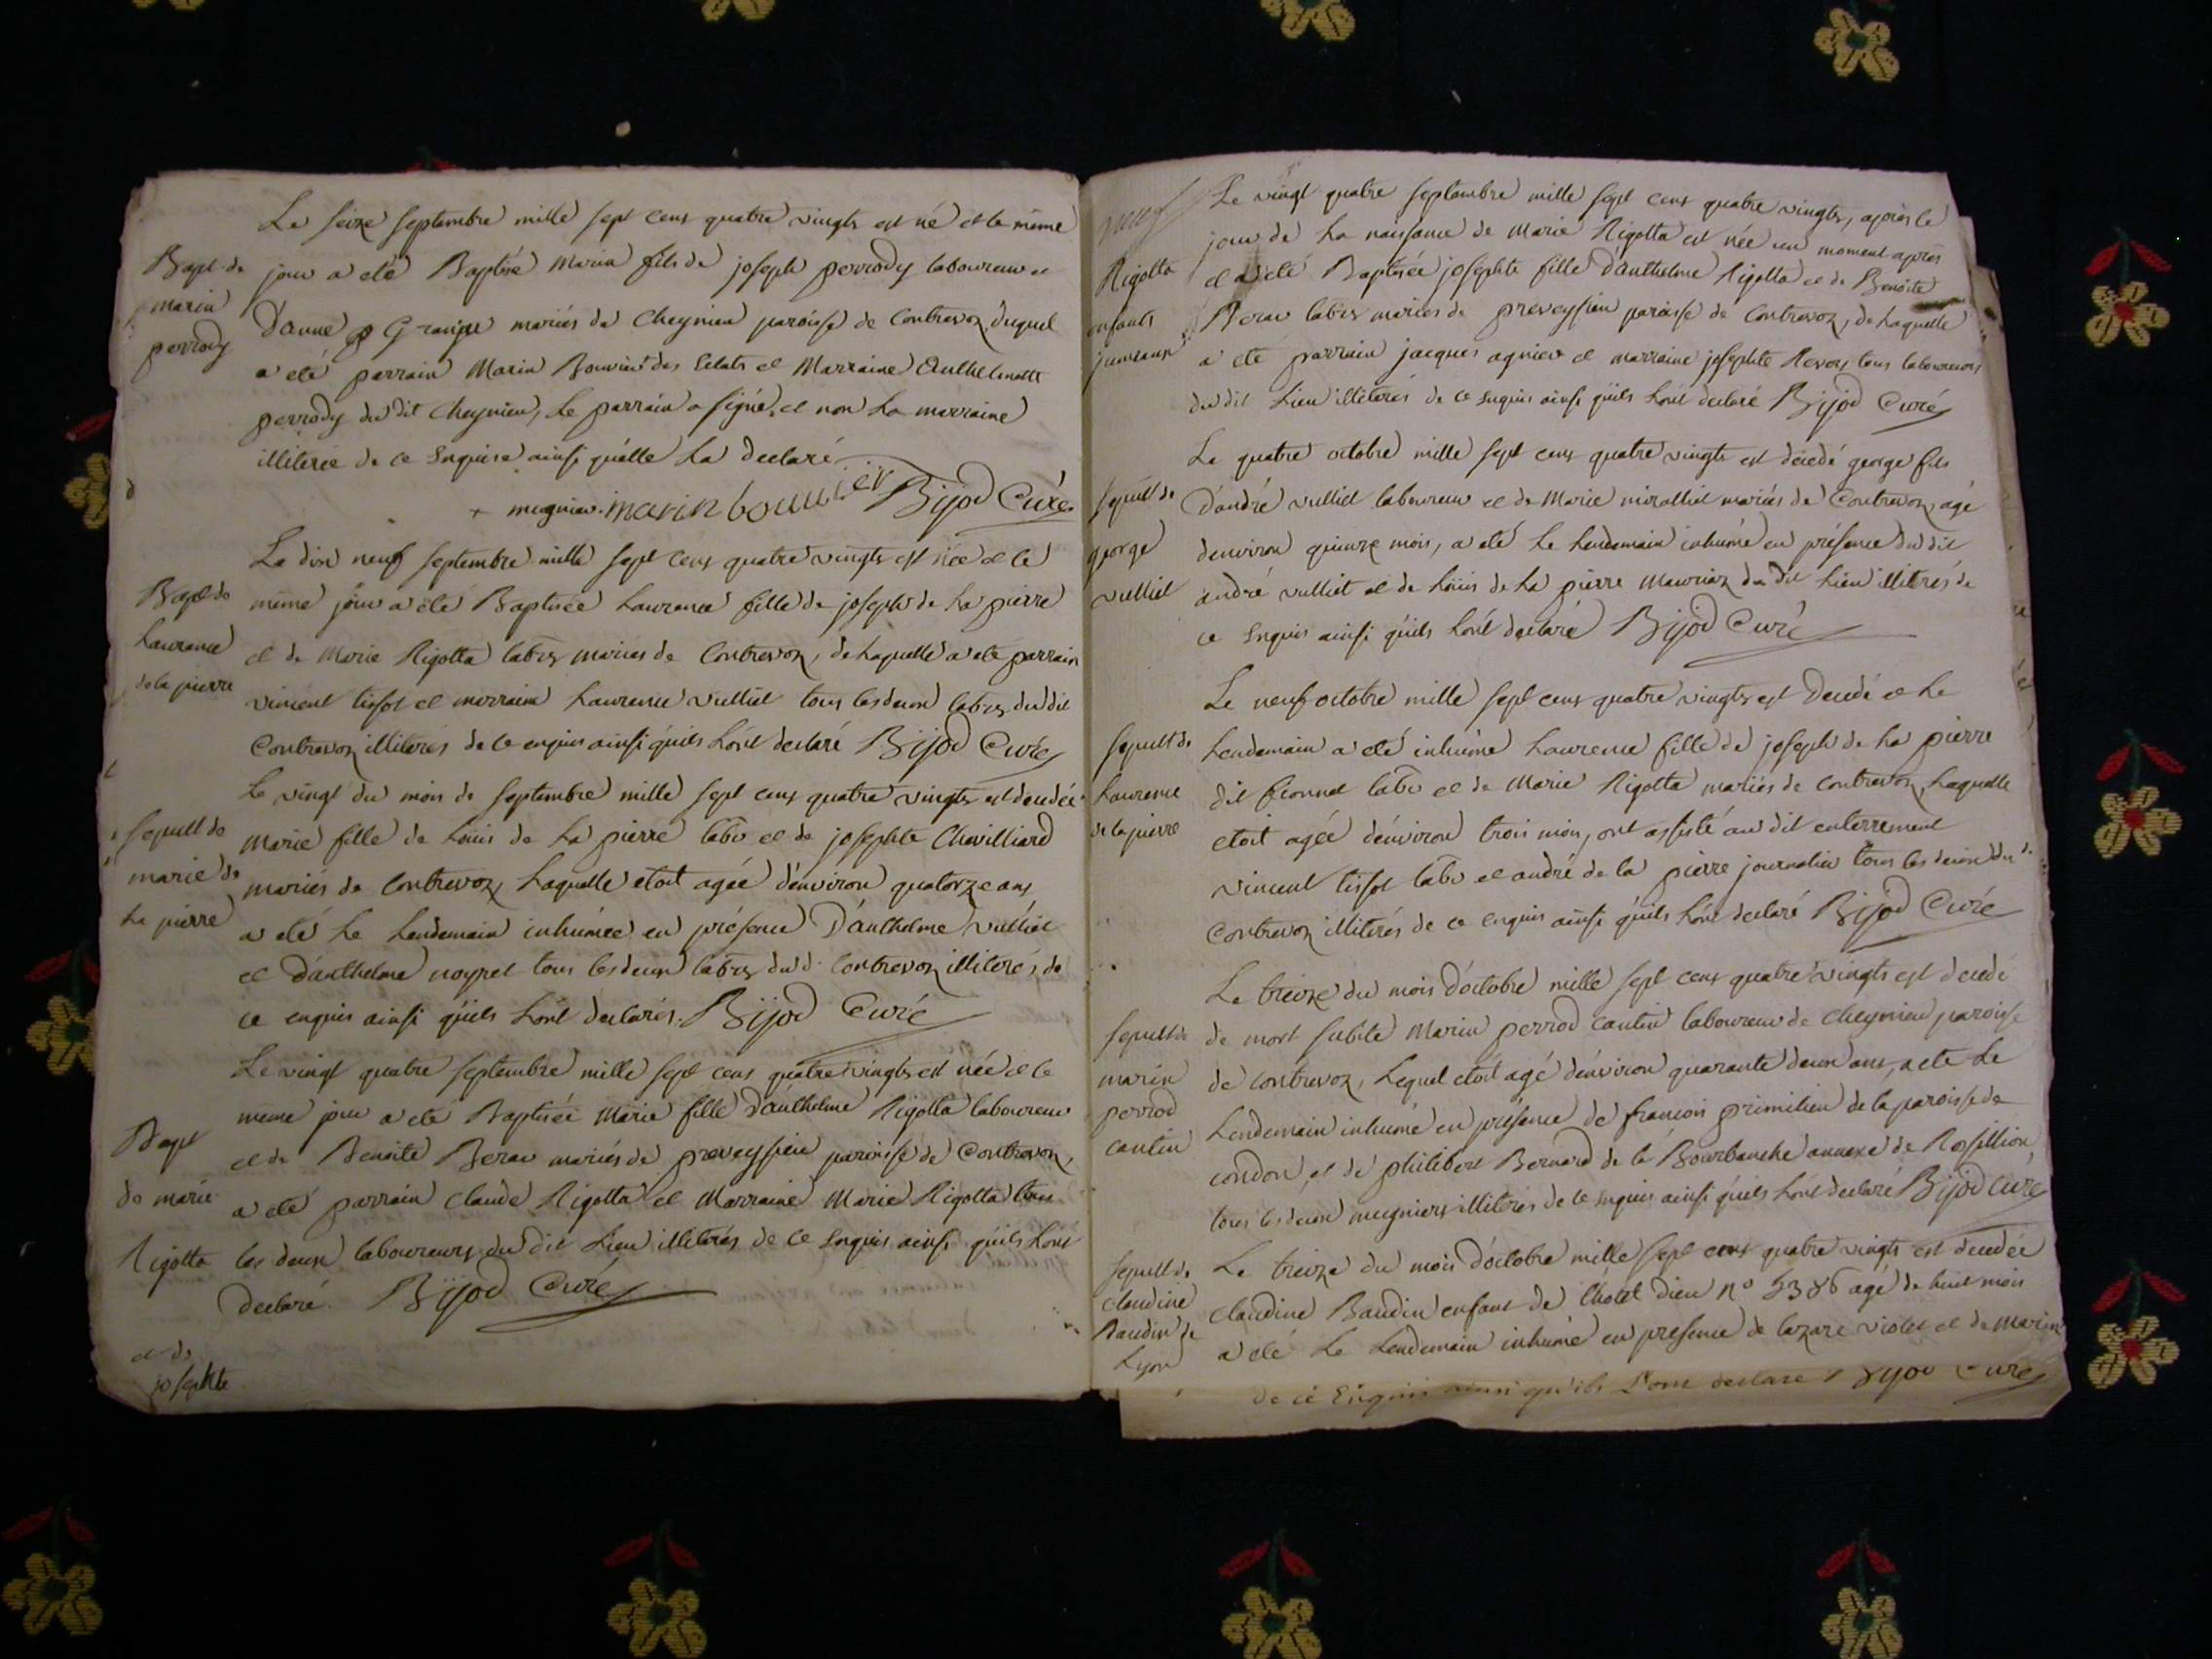 Le seize septembre mille sept cens quatre vingts est né et le même
Bapt. de
marin
perrody
jour a eté Baptisé Marin fils de joseph perrody laboureur et
d'anne Grange mariés de Cheynieu paroisse de Contrevoz, duquel
a été parrain Marin Bouvier des Selats et Marraine Anthelmette
perrody du dit Cheynieu, le parrain a signé, et non la marraine
illiterée de ce Enquise ainsi qu'elle la declaré
+ mugnier. marin bouuier Bijod Curé
Bapt. de
Laurence
de la pierre
Le dix neuf septembre mille sept cens quatre vingts est née et le
même jour a été Baptisée Laurence fille de joseph de la pierre
et de Marie Rigotta labrs mariés de Contrevoz, de laquelle a eté parrain
vincent tissot et marraine Laurence vulliet tous les deux labrs du dit
Contrevoz illiterés de ce enquis ainsi qu'ils l'ont declaré Bijod Curé
sepult de
marie de
la pierre
Le vingt du mois de septembre mille sept cens quatre vingts est decedée
marie fille de Louis de la pierre labr et de josephte Chevilliard
mariés de Contrevoz, laquelle etoit agée d'environ quatorze ans
a eté le lendemain inhumée en présence d'anthelme vulliet
et d'anthelme noyret tous les deux labrs dud. Contrevoz illiterés de
ce enquis ainsi qu'ils l'ont declarés. Bijod Curé
Bapt
de marie
Rigotta
Le vingt quatre septembre mille sept cens quatre vingts est née et le
meme jour a eté Baptisée Marie fille d'anthelme Rigotta laboureur
et de Benoite Berar mariés de preveyssieu paroisse de Contrevoz,
a eté parrain Claude Rigotta et Marraine Marie Rigotta tous
les deux laboureurs du dit Lieu illiterés de ce Enquis ainsi qu'ils l'ont
declaré. Bijod Curé
et de
josephte
Rigotta
enfants
jumeaux
Le vingt quatre septembre mille sept cens quatre vingts, après le
jour de la naissance de Marie Rigotta est née un moment après
et a eté Baptisée josephte fille d'anthelme Rigotta et de Benoite
Berar labrs mariés de preveyssieu paroisse de Contrevoz, de laquelle
a eté parrain jacques agnier et marraine josephte Revoy tous laboureurs
du dit Lieu illiterés de ce enquis ainsi qu'ils l'ont declaré Bijod Curé
sepult de
george
vulliet
Le quatre octobre mille sept cens quatre vingts est décedé george fils
d'andré vulliet laboureur et de Marie miralliet mariés de Contrevoz, agé
d'environ quinze mois, a eté le lendemain inhumé en présence du dit
andré vulliet et de Louis de la pierre Mauriaz du dit lieu illiterés de
ce Enquis ainsi qu'ils l'ont declaré Bijod Curé
sepult de
Laurence
de la pierre
Le neuf octobre mille sept cens quatre vingts est decedé et le
lendemain a eté inhumé Laurence fille de joseph de la pierre
dit labr et de Marie Rigotta mariés de contrevoz, laquelle
etoit agée d'environ trois mois, ont assisté au dit enterrement
vincent tissot labr et andré de la pierre journalier tous les deux du d.
Contrevoz illiterés de ce enquis ainsi qu'ils l'ont declaré Bijod Curé
sepult de
marin
perrod
cantin
Le treize du mois d'octobre mille sept cens quatre vingts est decedé
de mort subite Marin perrod cantin laboureur de Cheynieu paroisse
de Contrevoz, Lequel etoit agé d'environ quarante deux ans, a eté le
lendemain inhumé en présence de françois primilieu de la paroisse de
condon et de philibert Bernard de la Bourbanche annexe de Rossillion,
tous les deux mugniers illiterés de ce enquis ainsi qu'ils l'ont declaré Bijod curé
sepult de
claudine
Baudin de
Lyon
Le treize du mois d'octobre mille sept cens quatre vingts est decedée
claudine Baudin enfant de l'hotel Dieu n° agé de huit mois
a eté le Lendemain inhumé en presence de lazare violet et de marin
de ce Enquis ainsi qu'ils l'ont declaré Bijod Curé